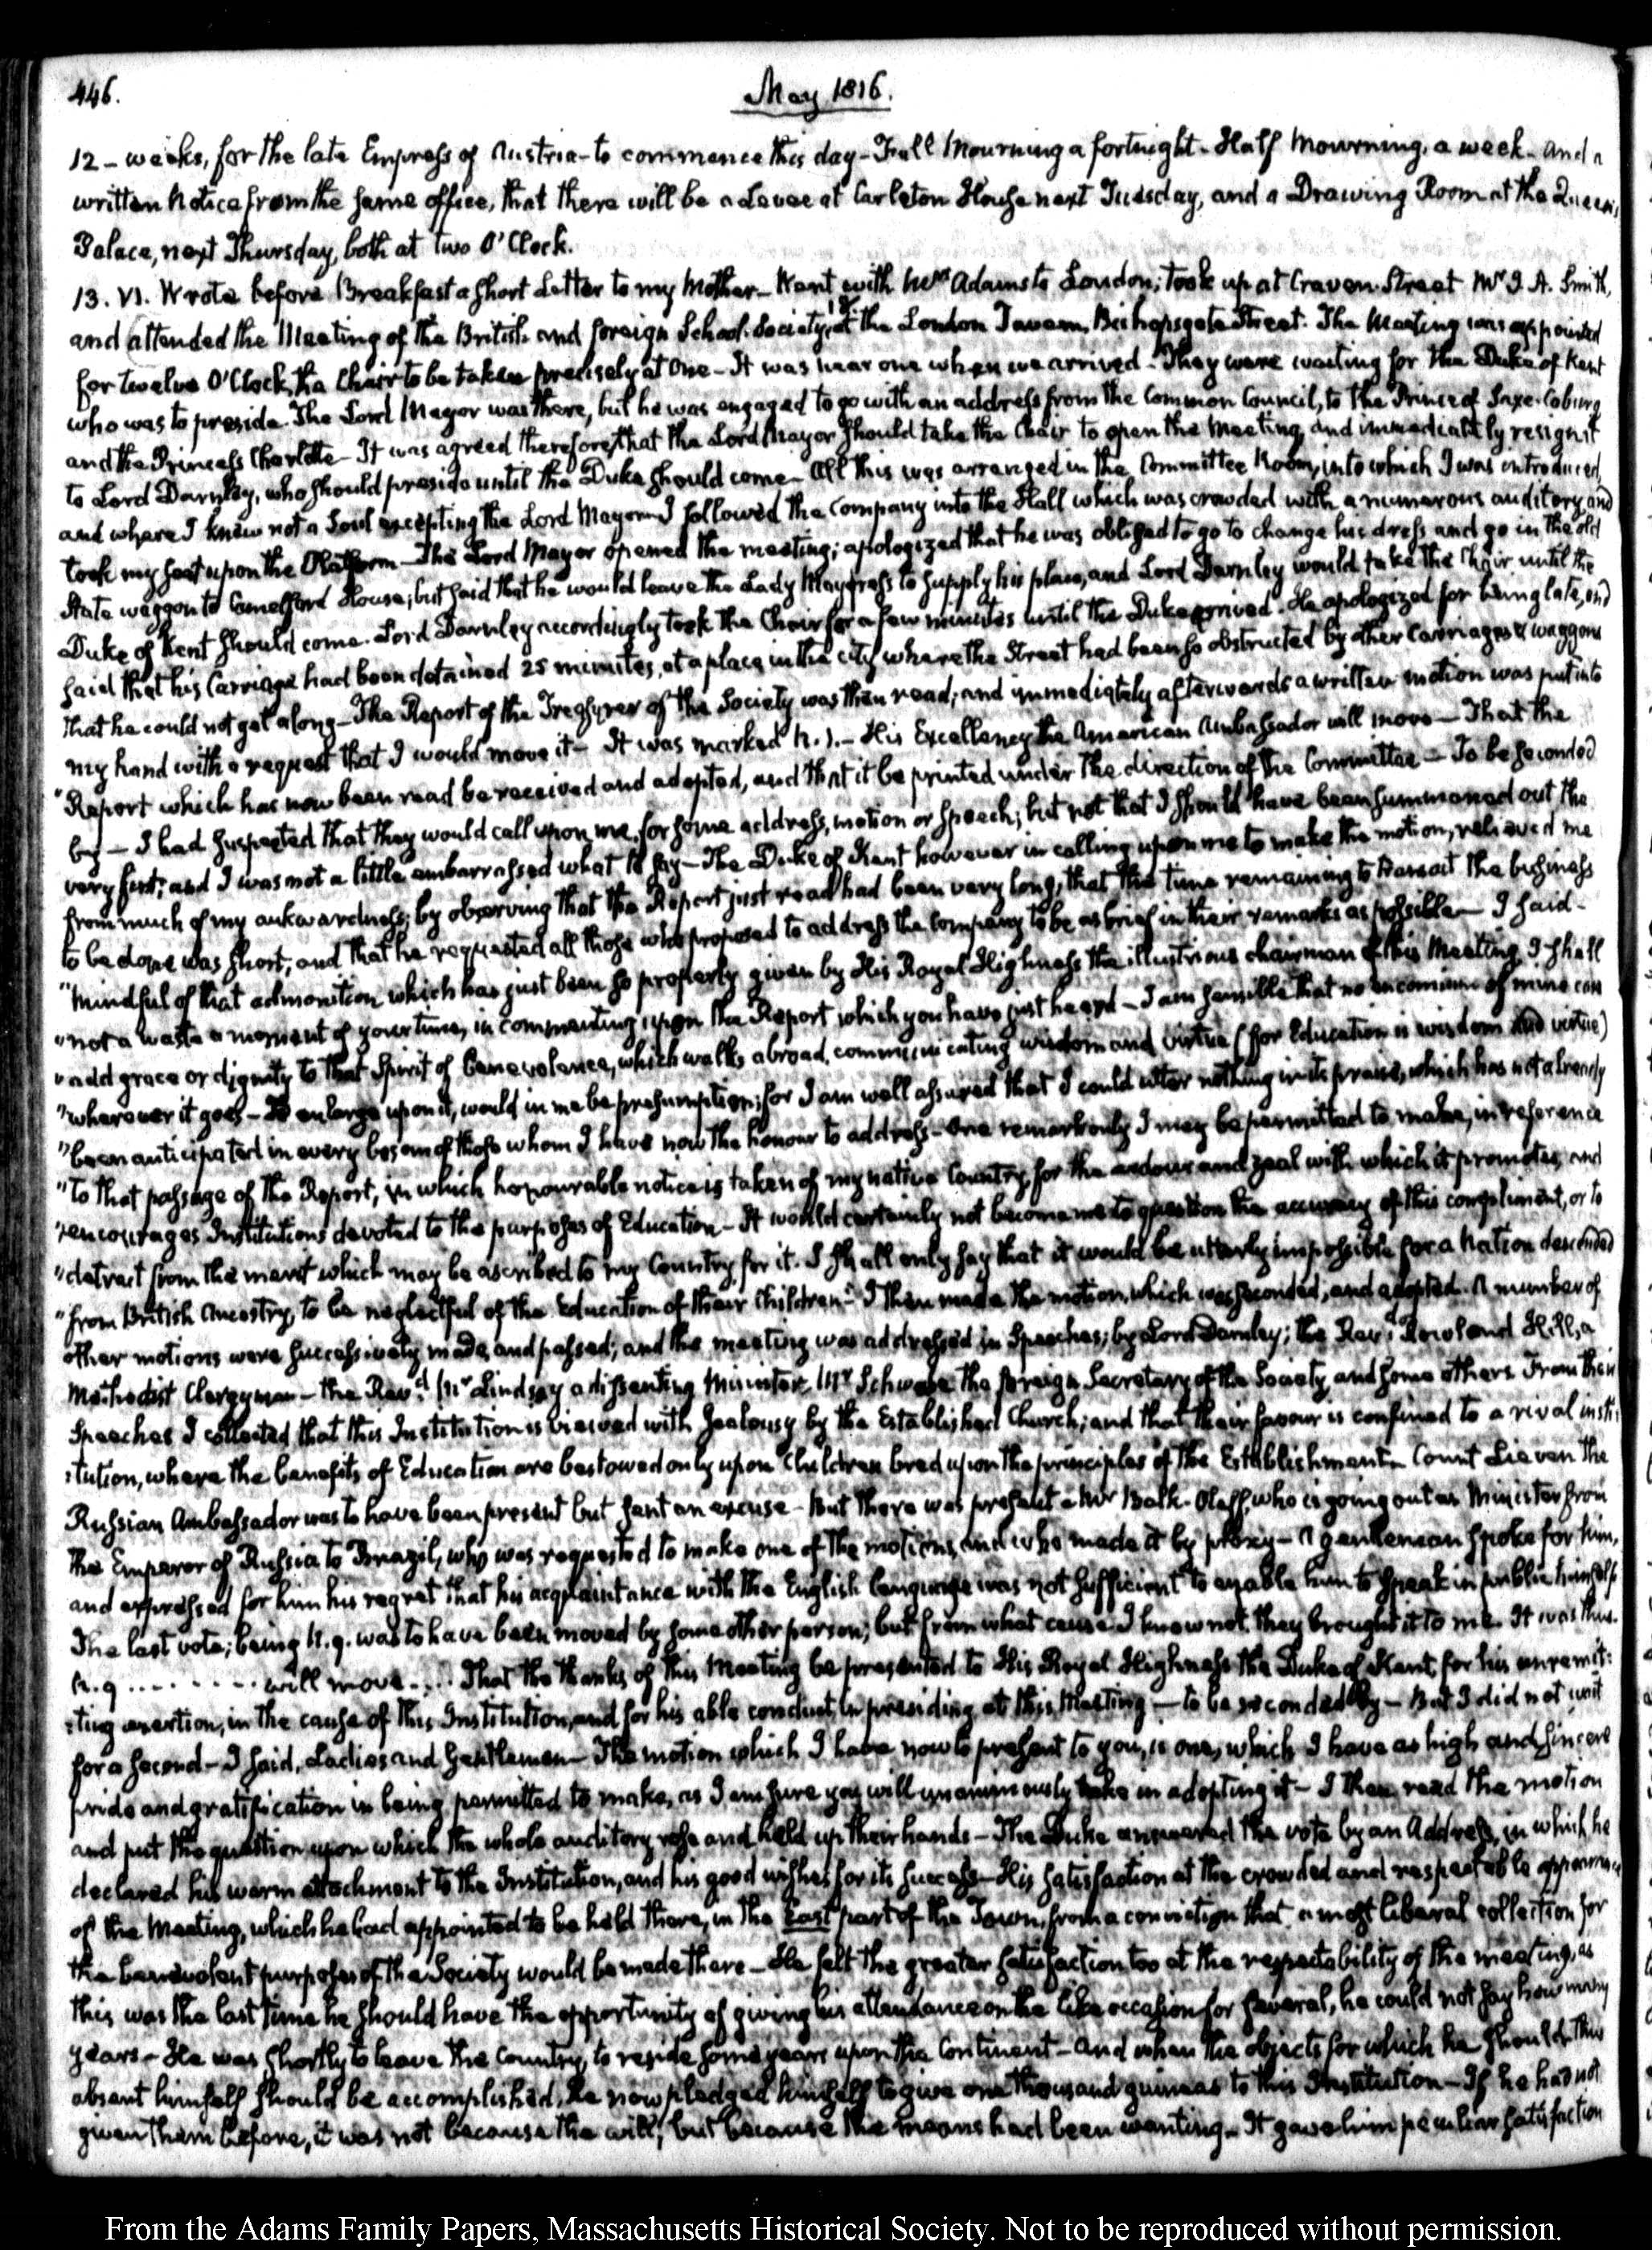 446.
May 1816.
12 - weeks, for the late Empress of Austria - to commence this day - Full Mourning a fortnight - Half Mourning, a week - and a
written Notice from the same office, that there will be a Levee at Carleton House next Tuesday, and a Drawing Room at the Queen's
Palace, next Thursday, both at two O'Clock.
13. VI. Wrote before Breakfast a short Letter to my Mother - Went with Mrs Adams to London; took up at Craven Street Mr J. A. Smith,
and attended the Meeting of the British and foreign School Society, at the London Tavern, Bishopsgate Street. The Meeting was appointed
for twelve O'Clock, the Chair to be taken precisely at One - It was near one when we arrived - They were waiting for the Duke of Kent
who was to preside. The Lord Mayor was there, but he was engaged to go with an address from the Common Council, to the Prince of Saxe-Coburg
and the Princess Charlotte - It was agreed therefore, that the Lord Mayor should take the Chair to open the Meeting, and immediately resign it
to Lord Darnley, who should preside until the Duke should come - All this was arranged in the Committee Room, into which I was introduced,
and where I knew not a Soul excepting the Lord Mayor - I followed the Company into the Hall which was crowded with a numerous auditory, and
took my seat upon the Platform - The Lord Mayor opened the meeting; apologized that he was obliged to go to change his dress and go in the old
State waggon to Camelford House; but said that he would leave the Lady Mayoress to supply his place, and Lord Darnley would take the Chair until the
Duke of Kent should come. Lord Darnley accordingly took the Chair for a few minutes until the Duke arrived. He apologized for being late, and
said that his Carriage had been detained 25 minutes, at a place in the city where the Street had been so obstructed by other Carriages & waggons
that he could not get along - The Report of the Treasurer of the Society was then read; and immediately afterwards a written motion was put into
my hand with a request that I would move it - It was marked N. 1. - His Excellency the American Ambassador will move - That the
"Report which has now been read be received and adopted, and that it be printed under the direction of the Committee - To be seconded
by - I had suspected that they would call upon me, for some address, motion or speech; but not that I should have been summoned out the
very first; and I was not a little embarrassed what to say - The Duke of Kent however in calling upon me to make the motion, relieved me
from much of my aukwardness, by observing that the Report just read had been very long, that the time remaining to transact the business
to be done was short, and that he requested all those who proposed to address the Company to be as brief in their remarks as possible - I said -
"Mindful of that admonition which has just been so properly given by His Royal Highness the illustrious chairman of this Meeting, I shall
"not a waste a moment of your time, in commenting upon the Report which you have just heard - I am sensible that no encomium of mine can
"add grace or dignity to that Spirit of Benevolence, which walks abroad, communicating wisdom and virtue (for Education is wisdom and virtue)
"wherever it goes - To enlarge upon it, would in me be presumption; for I am well assured that I could utter nothing in its praise, which has not already
"been anticipated in every bosom of those whom I have now the honour to address - One remark only I may be permitted to make, in reference
"to that passage of the Report, in which honourable notice is taken of my native Country, for the ardour and zeal with which it promotes, and
"encourages Institutions devoted to the purposes of Education - It would certainly not become me to question the accuracy of this compliment, or to
"detract from the merit which may be ascribed to my Country for it. I shall only say that it would be utterly impossible for a Nation descended
"from British Ancestry, to be neglectful of the Education of their Children" - I then made the motion, which was seconded, and adopted. A number of
other motions were successively made and passed; and the meeting was addressed in Speeches; by Lord Darnley; the Revd. Rowland Hill, a
Methodist Clergyman - the Revd. Mr Lindsay a dissenting Minister, Mr Schwabe the foreign Secretary of the Society and some others. From their
Speeches I collected that this Institution is viewed with Jealousy by the Established Church; and that their favour is confined to a rival insti:
:tution, where the benefits of Education are bestowed only upon Children bred upon the principles of the Establishment - Count Lieven the
Russian Ambassador was to have been present but sent an excuse - But there was present a Mr Balk-Poleff, who is going out as Minister from
the Emperor of Russia to Brazil, who was requested to make one of the motions, and who made it by proxy - A gentleman spoke for him,
and expressed for him his regret that his acquaintance with the English language was not sufficient to enable him to speak in public himself.
The last vote; being N. 9. was to have been moved by some other person; but from what cause I know not, they brought it to me. It was thus.
N. 9 . . . . . . . . will move . . . . That the thanks of this Meeting be presented to His Royal Highness the Duke of Kent, for his unremit:
:ting exertion, in the cause of this Institution, and for his able conduct in presiding at this Meeting - to be seconded by - But I did not wait
for a second - I said, Ladies and Gentlemen - The motion which I have now to present to you, is one, which I have as high and sincere
pride and gratification in being permitted to make, as I am sure you will unanimously take in adopting it - I then read the motion
and put the question upon which the whole auditory rose and held up their hands - The Duke answered the vote by an Address, in which he
declared his warm attachment to the Institution, and his good wishes for its success - His satisfaction at the crowded and respectable appearance
of the Meeting, which he had appointed to be held there, in the East part of the Town, from a conviction that a most liberal collection for
the benevolent purposes of the Society would be made there - He felt the greater satisfaction too at the respectability of the meeting, as
this was the last time he should have the opportunity of giving his attendance on the like occasion for several, he could not say how many
years - He was shortly to leave the Country, to reside some years upon the Continent - and when the objects for which he should thus
absent himself should be accomplished, he now pledged himself to give one thousand guineas to this Institution - If he had not
given them before, it was not because the will, but because the means had been wanting - It gave him peculiar satisfaction
From the Adams Family Papers, Massachusetts Historical Society. Not to be reproduced without permission.